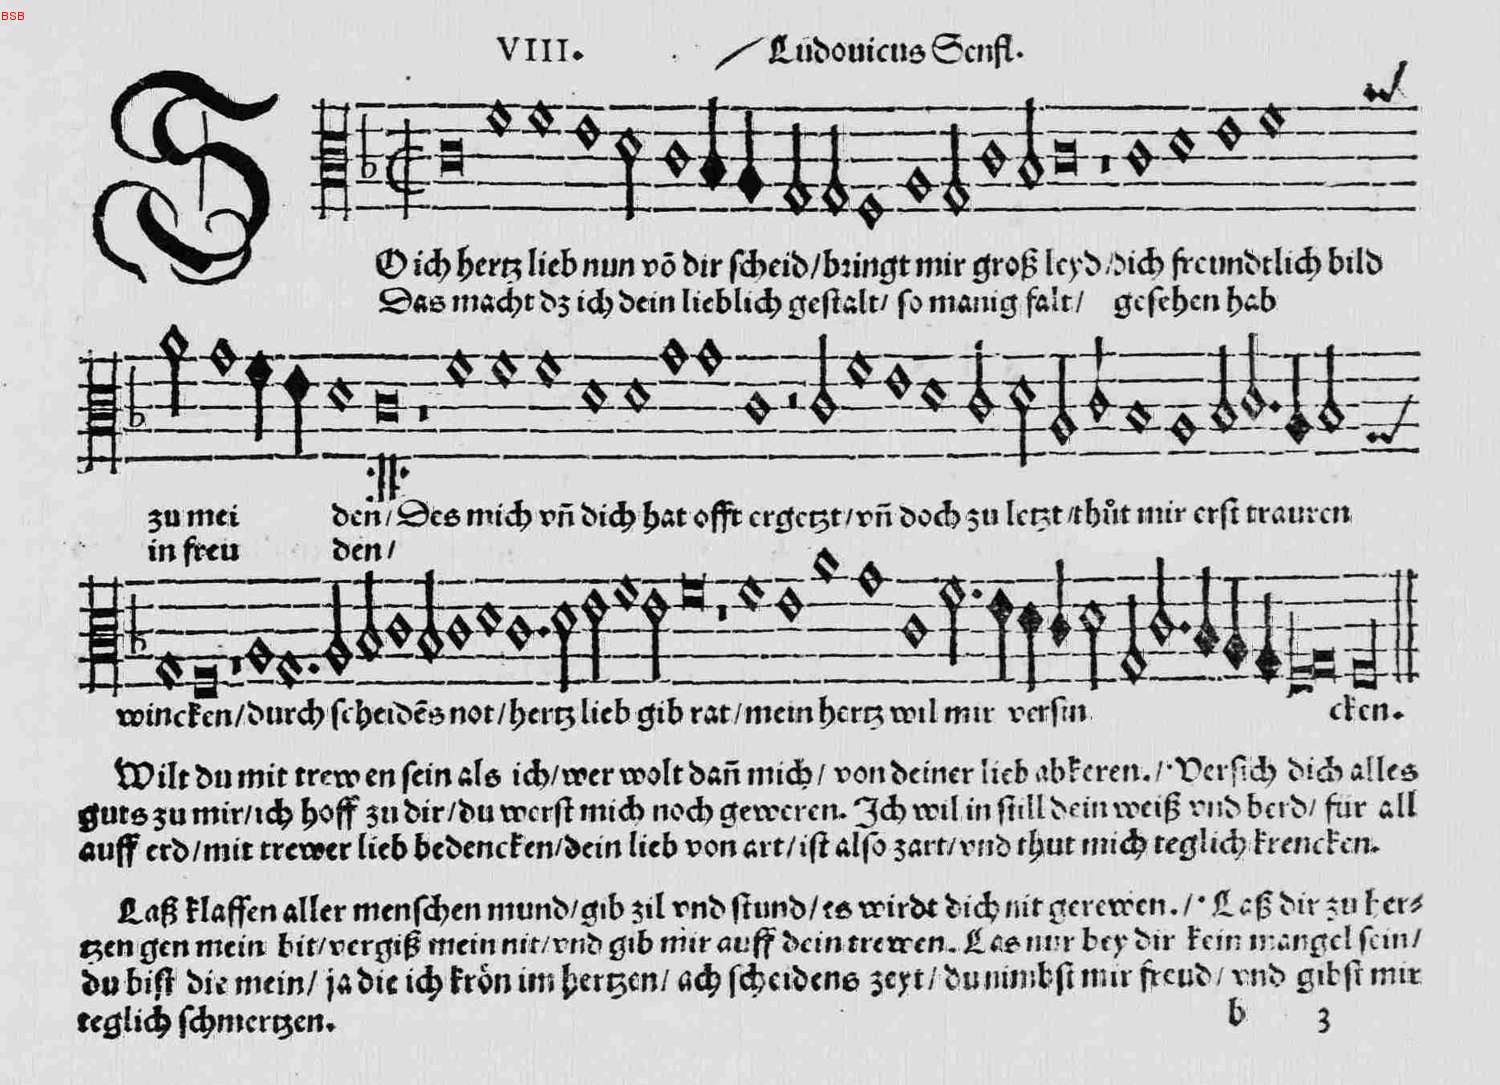 BSB
VIII. Ludouicus Senfl.
SO ich hertz lieb nun võ dir scheid/bringt mir groß leyd/dich freundtlich bild
Das macht dz ich dein lieblich gestalt/ so manig falt/ gesehen hab
zu mei den/Des mich vñ dich hat offt ergetzt/vñ doch zu letzt/thůt mir erst trauren
in freu den/
wincken/durch scheidẽs not/hertz lieb gib rat/mein hertz wil mir versin cken.
Wilt du mit trewen sein als ich/wer wolt dañ mich/ von deiner lieb abkeren./·Versich dich alles
guts zu mir/ich hoff zu dir/du werst mich noch geweren. Ich wil in still dein weiß vnd berd/ für all
auff erd/mit trewer lieb bedencken/dein lieb von art/ist also zart/vnd thut mich teglich krencken.
Laß klaffen aller menschen mund/gib zil vnd stund/es wirdt dich nit gerewen./·Laß dir zu her⸗
tzen gen mein bit/vergiß mein nit/vnd gib mir auff dein trewen. Las nur bey dir kein mangel sein/
du bist die mein/ ja die ich krön im hertzen/ ach scheidens zeyt/du nimbst mir freud/ vnd gibst mir
teglich schmertzen.
b 3